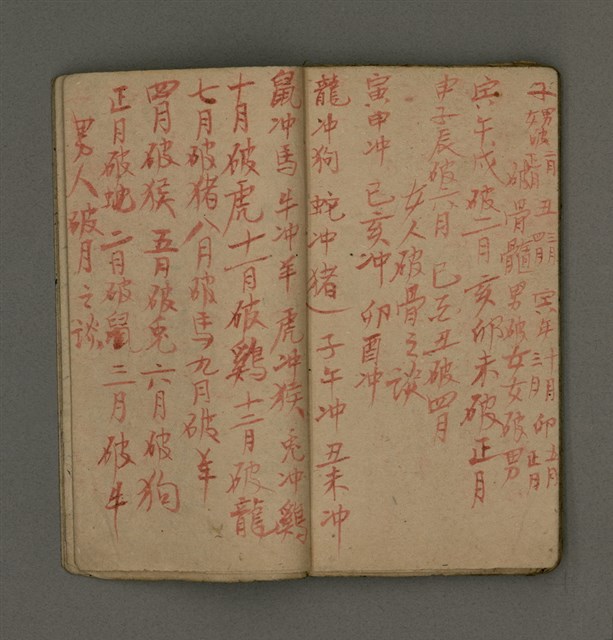 男人破月之談
正月破蛇 二月破鼠 三月破牛
四月破猴 五月破兎 六月破狗
七月破猪 八月破馬 九月破羊
十月破虎 十一月破鷄 十二月破龍
鼠冲馬 牛冲羊 虎冲猴 兎冲鷄
龍冲狗 蛇冲猪 子午冲 丑未冲
寅申冲 巳亥冲 卯酉冲
女人破骨之談
申子辰破六月 巳丑破四月
寅午戌破二月 亥卯未破正月
破骨髓男破女女破男
子 丑 寅 十月 三月 卯 五月 正月